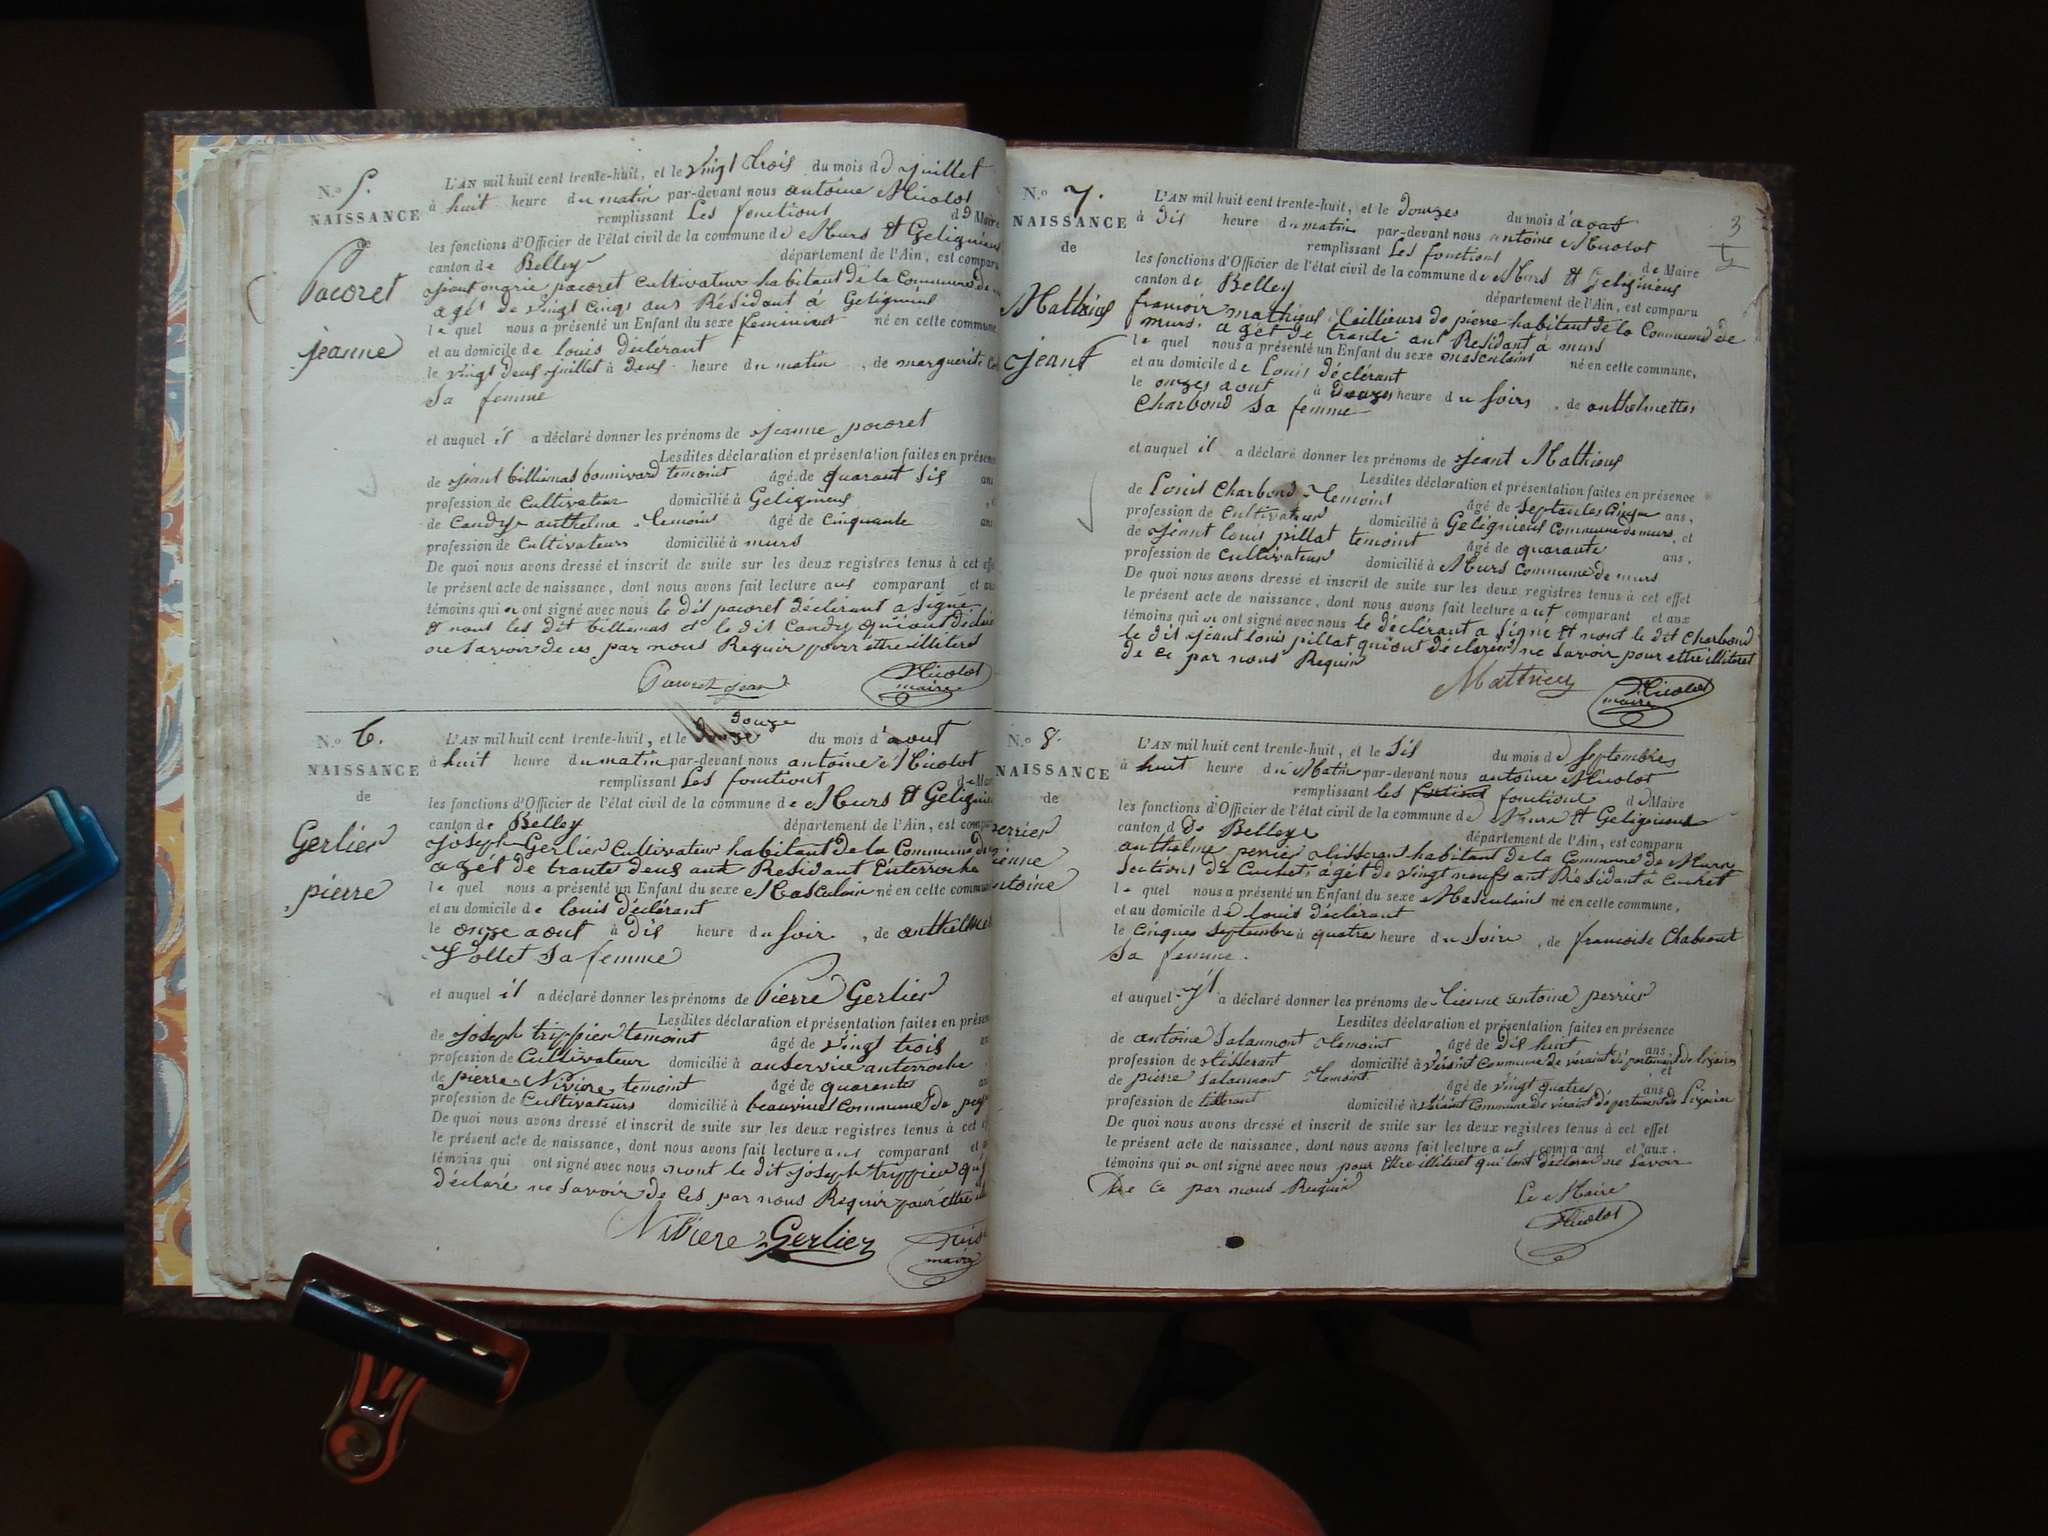 N.o 5.
NAISSANCE
de
Pacoret
jeanne
L'AN mil huit cent trente-huit, et le vingt trois du mois de juillet
à huit heure du matin par-devant nous antoine Nicolot
remplissant Les fonctions de Maire
les fonctions d'Officier de l'état civil de la commune de Murs et Gelignieus
canton de Belley département de l'Ain, est comparu
pacoret cultivateur habitant de la Commune de
agét de vingt cinqs ans Résidant à Geligneus
le quel nous a présenté un Enfant du sexe feminint né en cette commune,
et au domicile de louis déclérant
le vingt deus juillet à deus heure du matin, de marguerite
sa femme
et auquel il a déclaré donner les prénoms de jeanne pacoret
Lesdites déclaration et présentation faites en présence
de jeant billiemas bonnivard temoint âgé de quarant sis ans
profession de Cultivateur domicilié à Geligneus
de Candy anthelme temoint âgé de cinquante ans
profession de Cultivateurs domicilié à murs
De quoi nous avons dressé et inscrit de suite sur les deux registres tenus à cet effe
le présent acte de naissance, dont nous avons fait lecture aus comparant et aux
témoins qui ont signé avec nous le dit pacoret déclérant a signé
et nous les dit billiemas et le dit Candy qui ont déclaré
ne savoir de ces par nous Requir pour ettre illiteré
Pacoret jean
Nicolot
maire
N.o 6.
NAISSANCE
de
Gerlier
pierre
douze
L'AN mil huit cent trente-huit, et le du mois d'aout
à huit heure du matin par-devant nous antoine Nicolot
remplissant Les fonctions de Maire
les fonctions d'Officier de l'état civil de la commune de Murs et Geligni
canton de Belley département de l'Ain, est compar
joseph Gerlier Cultivateur habitant de la Commune de
agét de trante deus ans Residant
le quel nous a présenté un Enfant du sexe Masculain né en cette commune
et au domicile de louis déclérant
le onze aout à dis heure du soir, de anthelme
Jollet sa femme
et auquel il a déclaré donner les prénoms de Pierre Gerlier
Lesdites déclaration et présentation faites en présen
de joseph trippier temoint âgé de vingt trois
profession de Cultivateur domicilié à
de pierre Nivière temoint âgé de quarente
profession de Cultivateurs domicilié à commune de
De quoi nous avons dressé et inscrit de suite sur les deux registres tenus à cet
le présent acte de naissance, dont nous avons fait lecture aus comparant et
témoins qui ont signé avec nous nont le dit joseph trippier qui
déclaré ne savoir de ces par nous Requir pour ettre
Nivière Gerlier
maire
3
N.o 7.
NAISSANCE
de
Mathieus
jeant
L'AN mil huit cent trente-huit, et le douzes du mois d'aout
à dis heure du matin par-devant nous antoine Nicolot
remplissant Les fonctions de Maire
les fonctions d'Officier de l'état civil de la commune de Murs et Geligneus
canton de Belley département de l'Ain, est comparu
francoir mathieus tailleurs de pierre habitant de la Commune de
murs. agét de trante ans Residant à murs
le quel nous a présenté un Enfant du sexe masculaint né en cette commune,
et au domicile de Louis déclérant
le onzes aout à douzes heure du soirs, de anthelmettes
Charbond sa femme
et auquel il a déclaré donner les prénoms de jeant Mathieus
Lesdites déclaration et présentation faites en présence
de Louis Charbond temoint âgé de septentes cinqs ans,
profession de Cultivateur domicilié à Geligneus Commune de murs, et
de jeant louis pillat temoint âgé de quarante ans,
profession de Cultivateur domicilié à Murs commune de murs
De quoi nous avons dressé et inscrit de suite sur les deux registres tenus à cet effet
le présent acte de naissance, dont nous avons fait lecture aut comparant et aux
témoins qui ont signé avec nous le déclérant a signé et nont le dit Charbond
le dit jeant louis pillat qui ont déclarer ne savoir pour ettre illiteret
de ce par nous Requir
Mathieus
Nicolot
maire
N.o 8.
NAISSANCE
de
perrier
tienne
antoine
L'AN mil huit cent trente-huit, et le sis du mois de septembres
à huit heure du Matin par-devant nous antoine Nicolot
remplissant les fonctions de Maire
les fonctions d'Officier de l'état civil de la commune de Murs et Geligneus
canton d De Belleys département de l'Ain, est comparu
anthelme perrier tisseran habitant de la Commune de Murs
sections de Cuchet agét de vingt neufs ant Résidant à Cuchet
le quel nous a présenté un Enfant du sexe Masculaint né en cette commune,
et au domicile de louis déclérant
le cinques septembre à quatre heure du soire, de francoise Chabeaut
sa femme.
et auquel yl a déclaré donner les prénoms de tienne antoine perrier
Lesdites déclaration et présentation faites en présence
de antoine salaumont temoint âgé de dis huit ans
profession de tisserant domicilié à Commune de département de et
de pierre salaumont temoint âgé de vingt quatres ans
profession de domicilié à Commune de département de
De quoi nous avons dressé et inscrit de suite sur les deux registres tenus à cet effet
le présent acte de naissance, dont nous avons fait lecture aus comparant et aux.
témoins qui ont signé avec nous pour ettre illiteret qui lont déclarer ne savoir
De ce par nous Requir
Le Maire
Nicolot